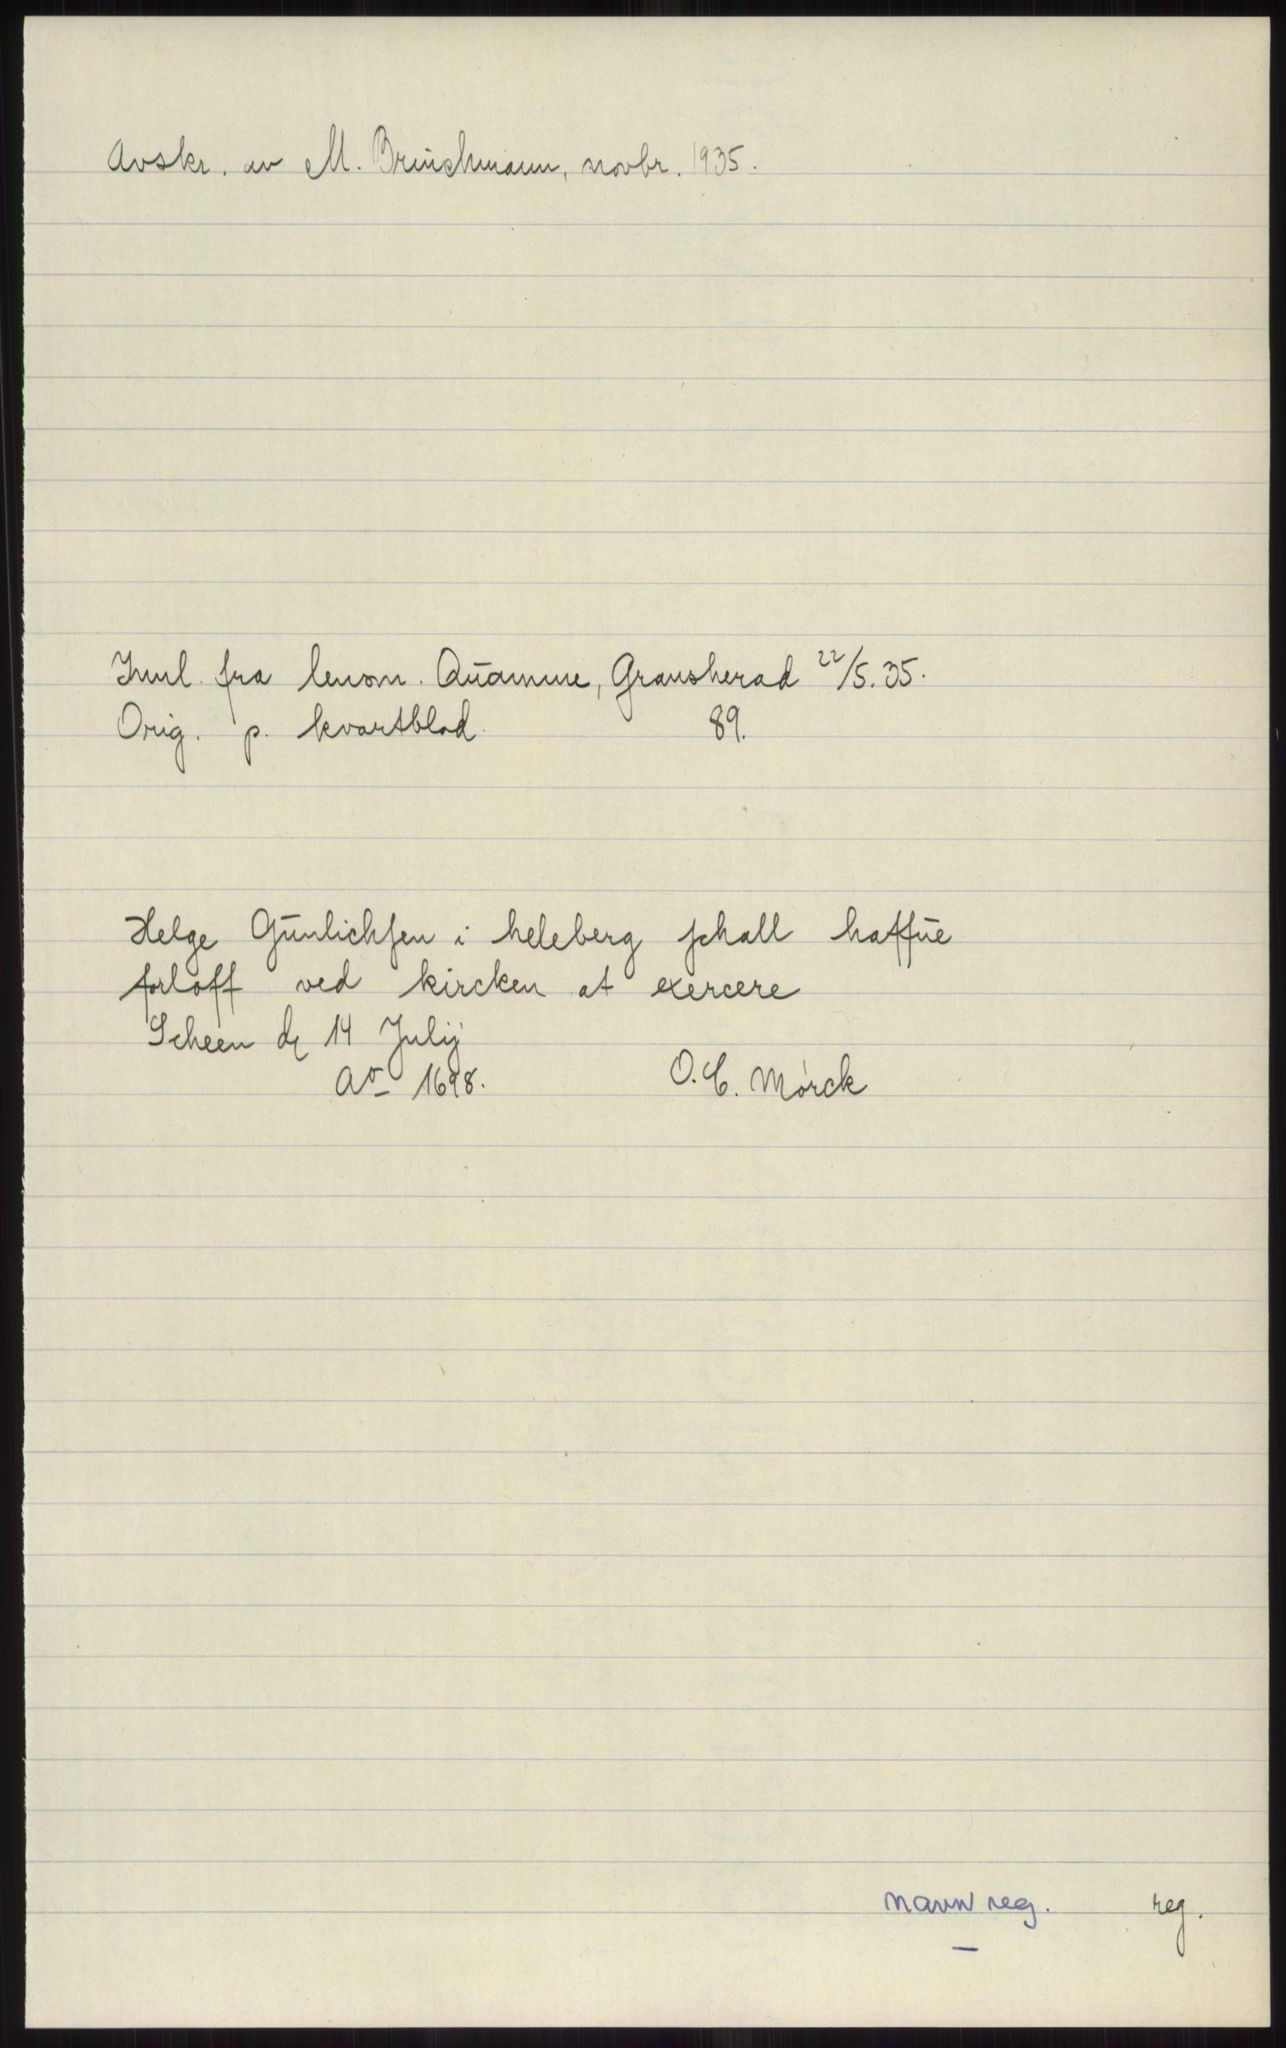 Avskr. av M. Brinchmann, novbr. 1935.
Innl. fra lensm. Quamme, Gransherad 22/5.35.
Orig. p. kvartblad 89.
Helge Gunlichsen i heleberg schall haffue
forloff ved kircken at exercere
Scheen d 14 Julij
Ao 1698. O. C. Mørck
navn reg. reg.